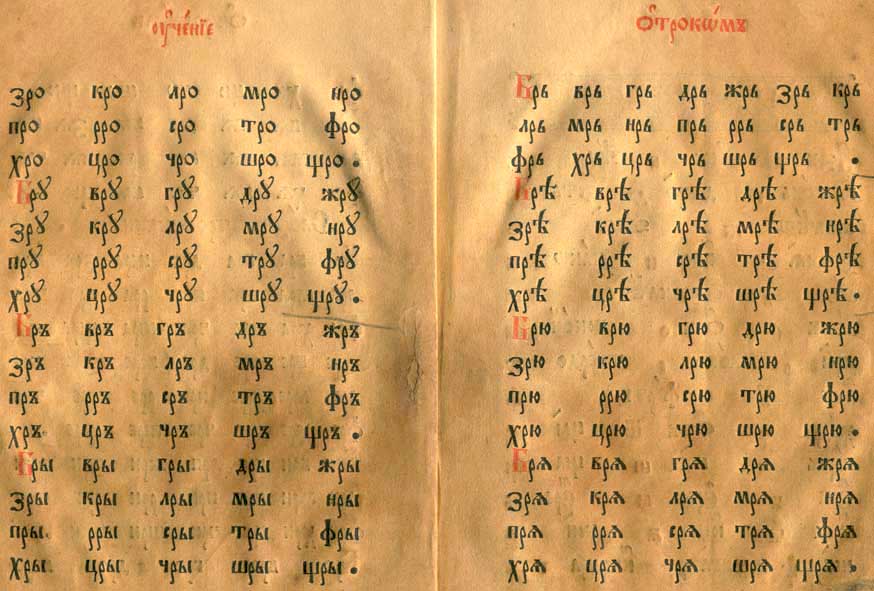 оу҆че́нїе
зро кро лро мро нро
про рро сро тро фро
хро цро чро шро щро .
Брꙋ врꙋ грꙋ дрꙋ жрꙋ
зрꙋ крꙋ лрꙋ мрꙋ нрꙋ
прꙋ ррꙋ срꙋ трꙋ фрꙋ
хрꙋ црꙋ чрꙋ шрꙋ щрꙋ .
Бръ връ гръ дръ жръ
зръ кръ лръ мръ нръ
пръ рръ сръ тръ фръ
хръ цръ чръ шръ щръ .
Бры вры гры дры жры
зры кры лры мры нры
пры рры сры тры фры
хры цры чры шры щры .
Ѻ҆трокѡ́мъ
Брь врь грь дрь жрь зрь крь
лрь мрь нрь прь ррь срь трь
фрь хрь црь чрь шрь щрь .
Брѣ врѣ грѣ дрѣ жрѣ
зрѣ крѣ лрѣ мрѣ нрѣ
прѣ ррѣ срѣ трѣ фрѣ
хрѣ црѣ чрѣ шрѣ щрѣ .
Брю врю грю дрю жрю
зрю крю лрю мрю нрю
прю ррю срю трю фрю
хрю црю чрю шрю щрю .
Брѧ врѧ грѧ дрѧ жрѧ
зрѧ крѧ лрѧ мрѧ нрѧ
прѧ ррѧ срѧ трѧ фрѧ
хрѧ црѧ чрѧ шрѧ щрѧ .